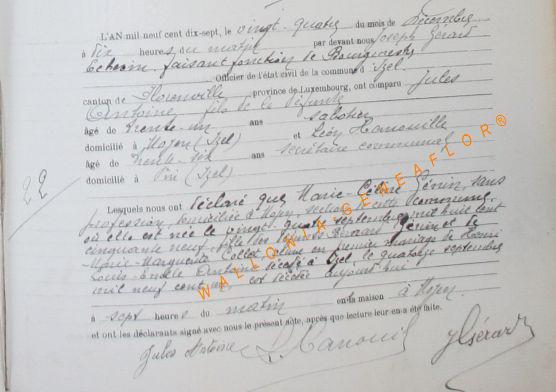 L'AN mil neuf cent dix-sept, le vingt-quatre du mois de Décembre
à dix heures du matin par devant nous Joseph Gérard
Echevin faisant fonction de Bourgmestre
Officier de l'état civil de la commune d'Izel
canton de Florenville province de Luxembourg, ont comparu Jules
Antoine fils de la défunte
âgé de trente-un ans sabotier
domicilié à Moyen (Izel) et Léon Hanouille
âgé de trente-six ans secrétaire communal
domicilié à Pin (Izel)
22
Lesquels nous ont déclaré que Marie-Céline Génin, sans
profession, domiciliée à Moyen, section de cette commune,
où elle est née le vingt-quatre septembre mil huit cent
cinquante neuf, fille des Génin et de
Marie-Marguerite Collet, en premier mariage de
Louis Antoine décédé à Izel, le quatorze septembre
mil neuf cent est décédée aujourd'hui
à sept heures du matin en la maison à Moyen
et ont les déclarants signé avec nous le présent acte, après que lecture leur en a été faite.
Jules Antoine L. Hanouil J. Gérard
WALLONIA GENEAFLOR®